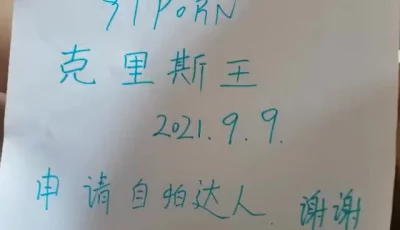 91PORN
克里斯王
2021.9.9.
申请自拍达人 谢谢